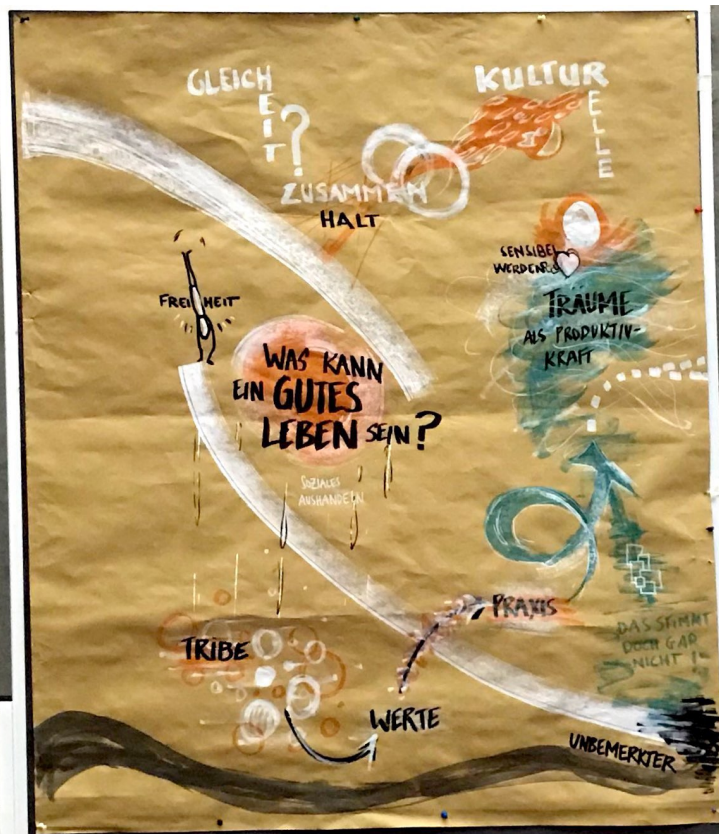 GLEICHEIT?
KULTURELLE
ZUSAMMEN
HALT
SENSIBEL
WERDEN
FREIHEIT
TRÄUME
ALS PRODUKTIV-
KRAFT
WAS KANN
EIN GUTES
LEBEN SEIN?
SOZIALES
AUSHANDELN
PRAXIS
DAS STIMMT
DOCH GAR
NICHT!
TRIBE
WERTE
UNBEMERKTER